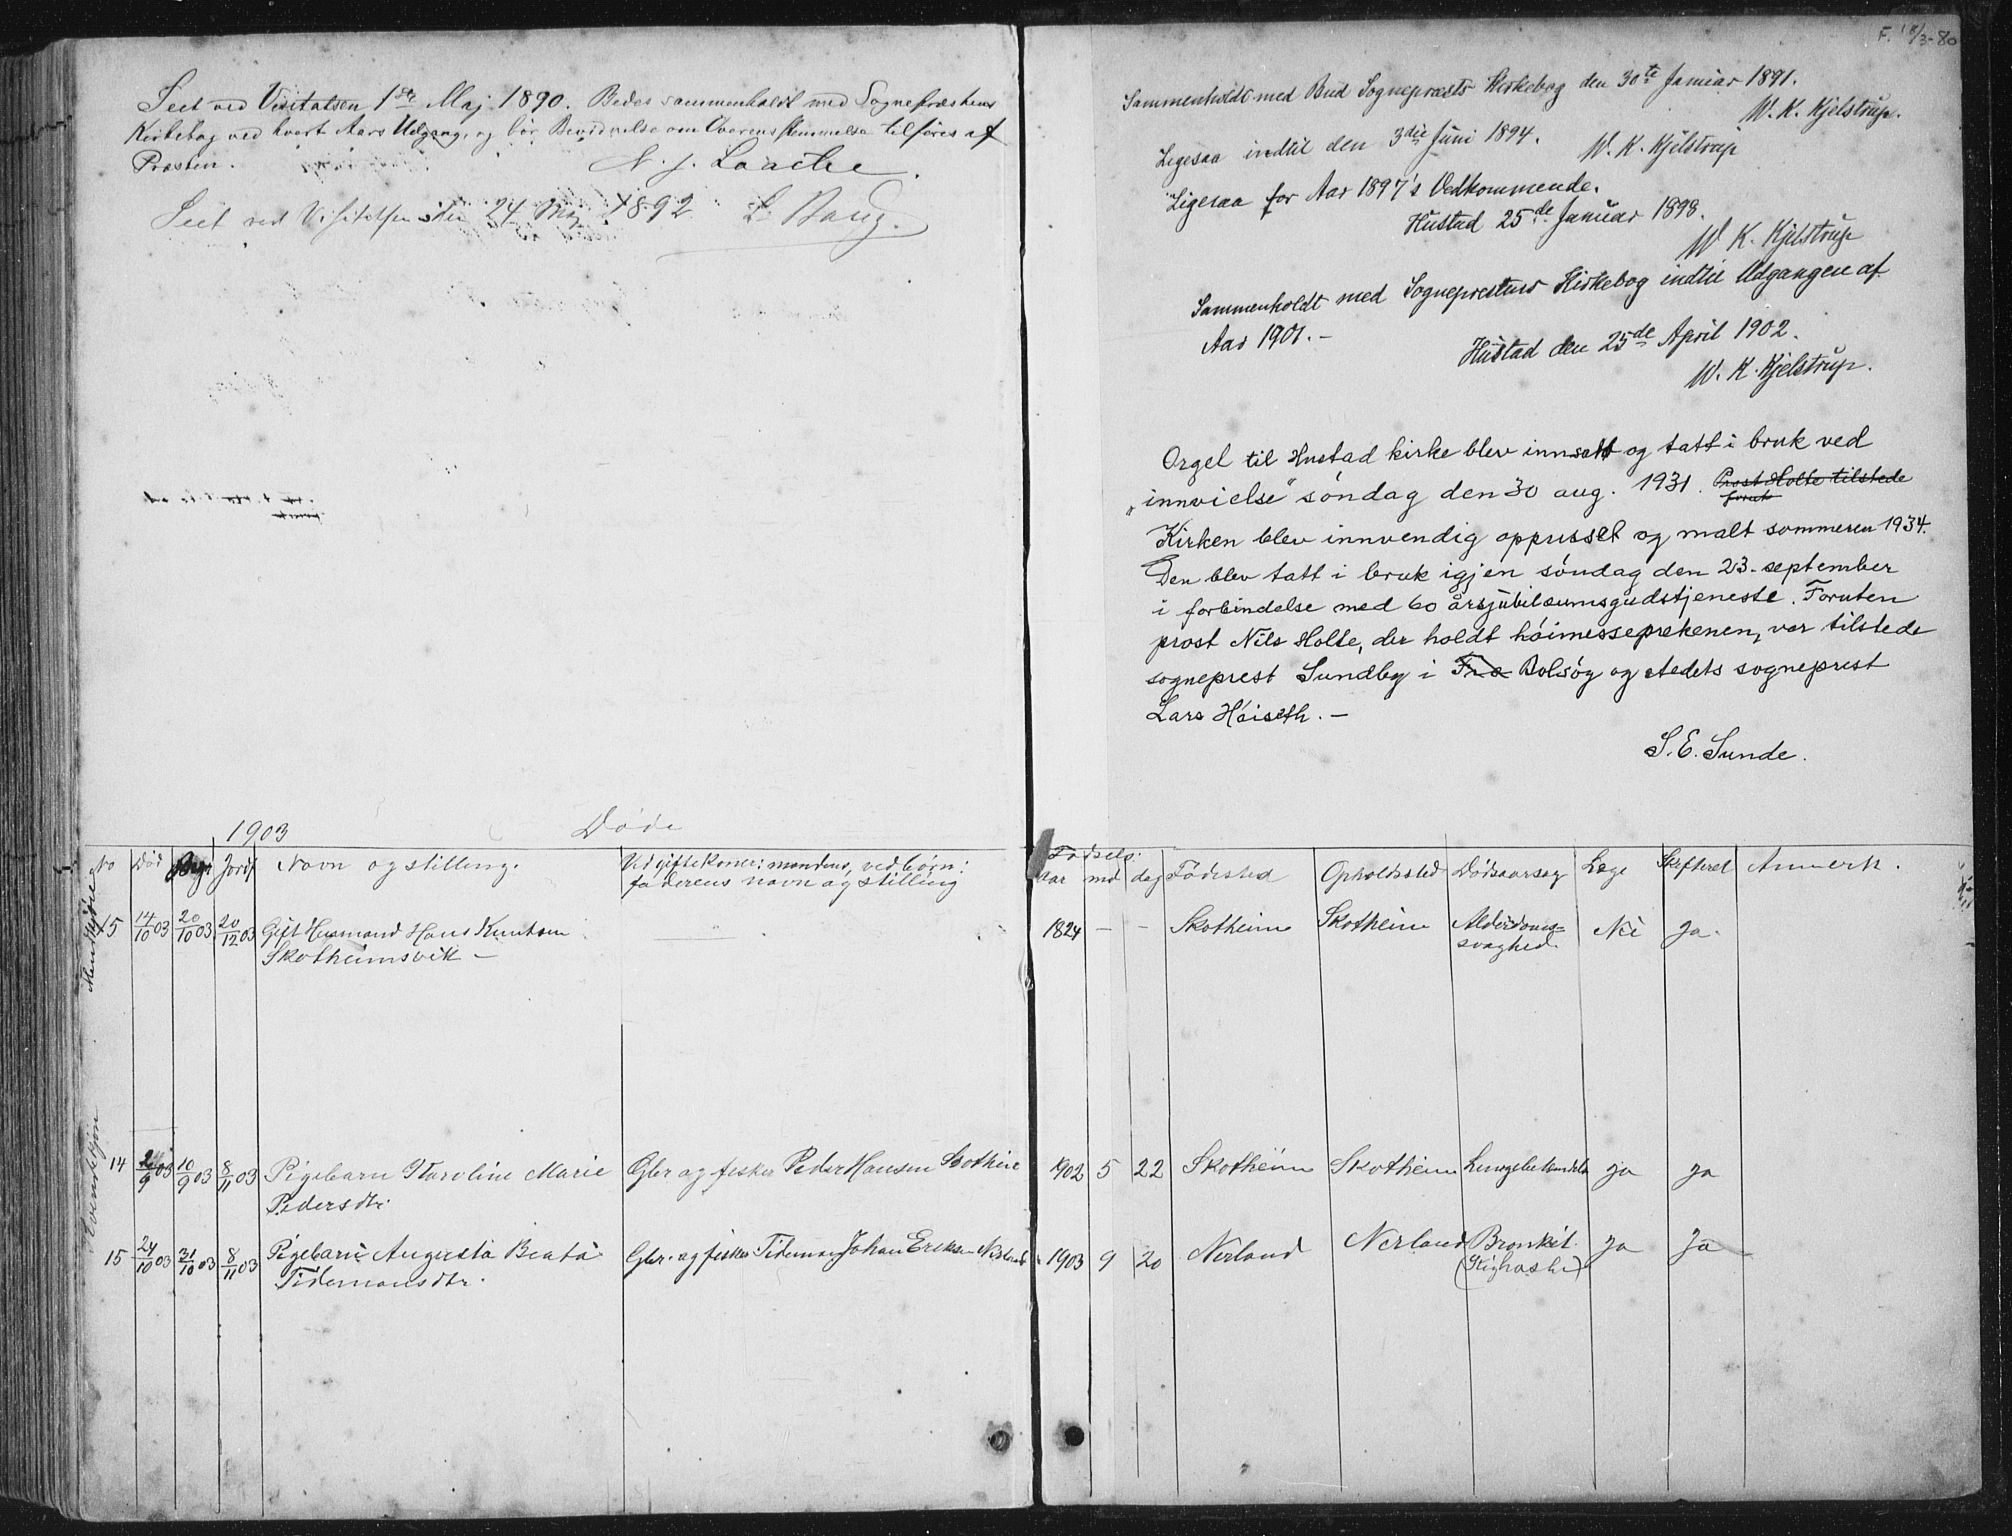 Seet ved Visitatsen 1ste Maj 1890. Bedes sammenholdt med Sognepræstens
Kirkebog ved hvert Aars Udgang, og bør Bevidnelse om Overensstemmelse tilføres af
Præsten.
N. J. Laache.
Seet ved Visitatsen den 24 Maj 1892 L. Bang.
F. 18/3-80
Sammenholdt med Bud Sognepræsts Kirkebog den 30te Januar 1891.
W. K. Kjelstrup.
Ligesaa indtil den 3die Juni 1894.
W. K. Kjelstrup
Ligesaa for Aar 1897's Vedkommende.
Hustad 25de Januar 1898.
W. K. Kjelstrup
Sammenholdt med Sogneprestens Kirkebog indtil Udgangen af
Aar 1901. -
Hustad den 25de April 1902.
W. K. Kjelstrup.
Orgel til Hustad kirke blev innsatt og tatt i bruk ved
"innvielse" søndag den 30 aug. 1931. Prost Holte tilstede
forut
Kirken blev innvendig oppusset og malt sommeren 1934.
Den blev tatt i bruk igjen søndag den 23. september
i forbindelse med 60 årsjubileumsgudstjeneste. Foruten
prost Nils Holte, der holdt høimesseprekenen, var tilstede
sogneprest Sundby i Fræ Bolsøy og stedets sogneprest
Lars Høiseth. -
S. E. Sunde.
1903 Døde
No Død Begr Jordf Navn og stilling. Ved giftekoner: mandens, ved børn: Fødsels: Fødested Opholdssted Dødsaarsag Læge Skifteret Anmerk.
faderens navn og stilling aar md dag
Mandkjøn
15 14/10 03 20/10 03 20/12 03 Gift Husmand Hans Knutsen 1824 - - Skotheim Skotheim Alderdoms= Nei Ja.
Skotheimsvik - svaghed.
Kvindekjøn
14 2/9 03 10/9 03 8/11 03 Pigebarn Karoline Marie Gbr og fisker Peder Hansen Skotheim 1902 5 22 Skotheim Skotheim Lungebetændelse ja ja
Pedersdtr
15 24/10 03 31/10 03 8/11 03 Pigebarn Augusta Beata Gbr. og fisker Tideman Johan Eriksen Nerland 1903 9 20 Nerland Nerland Bronkit. Ja Ja
Tidemansdtr. (Kighoste)